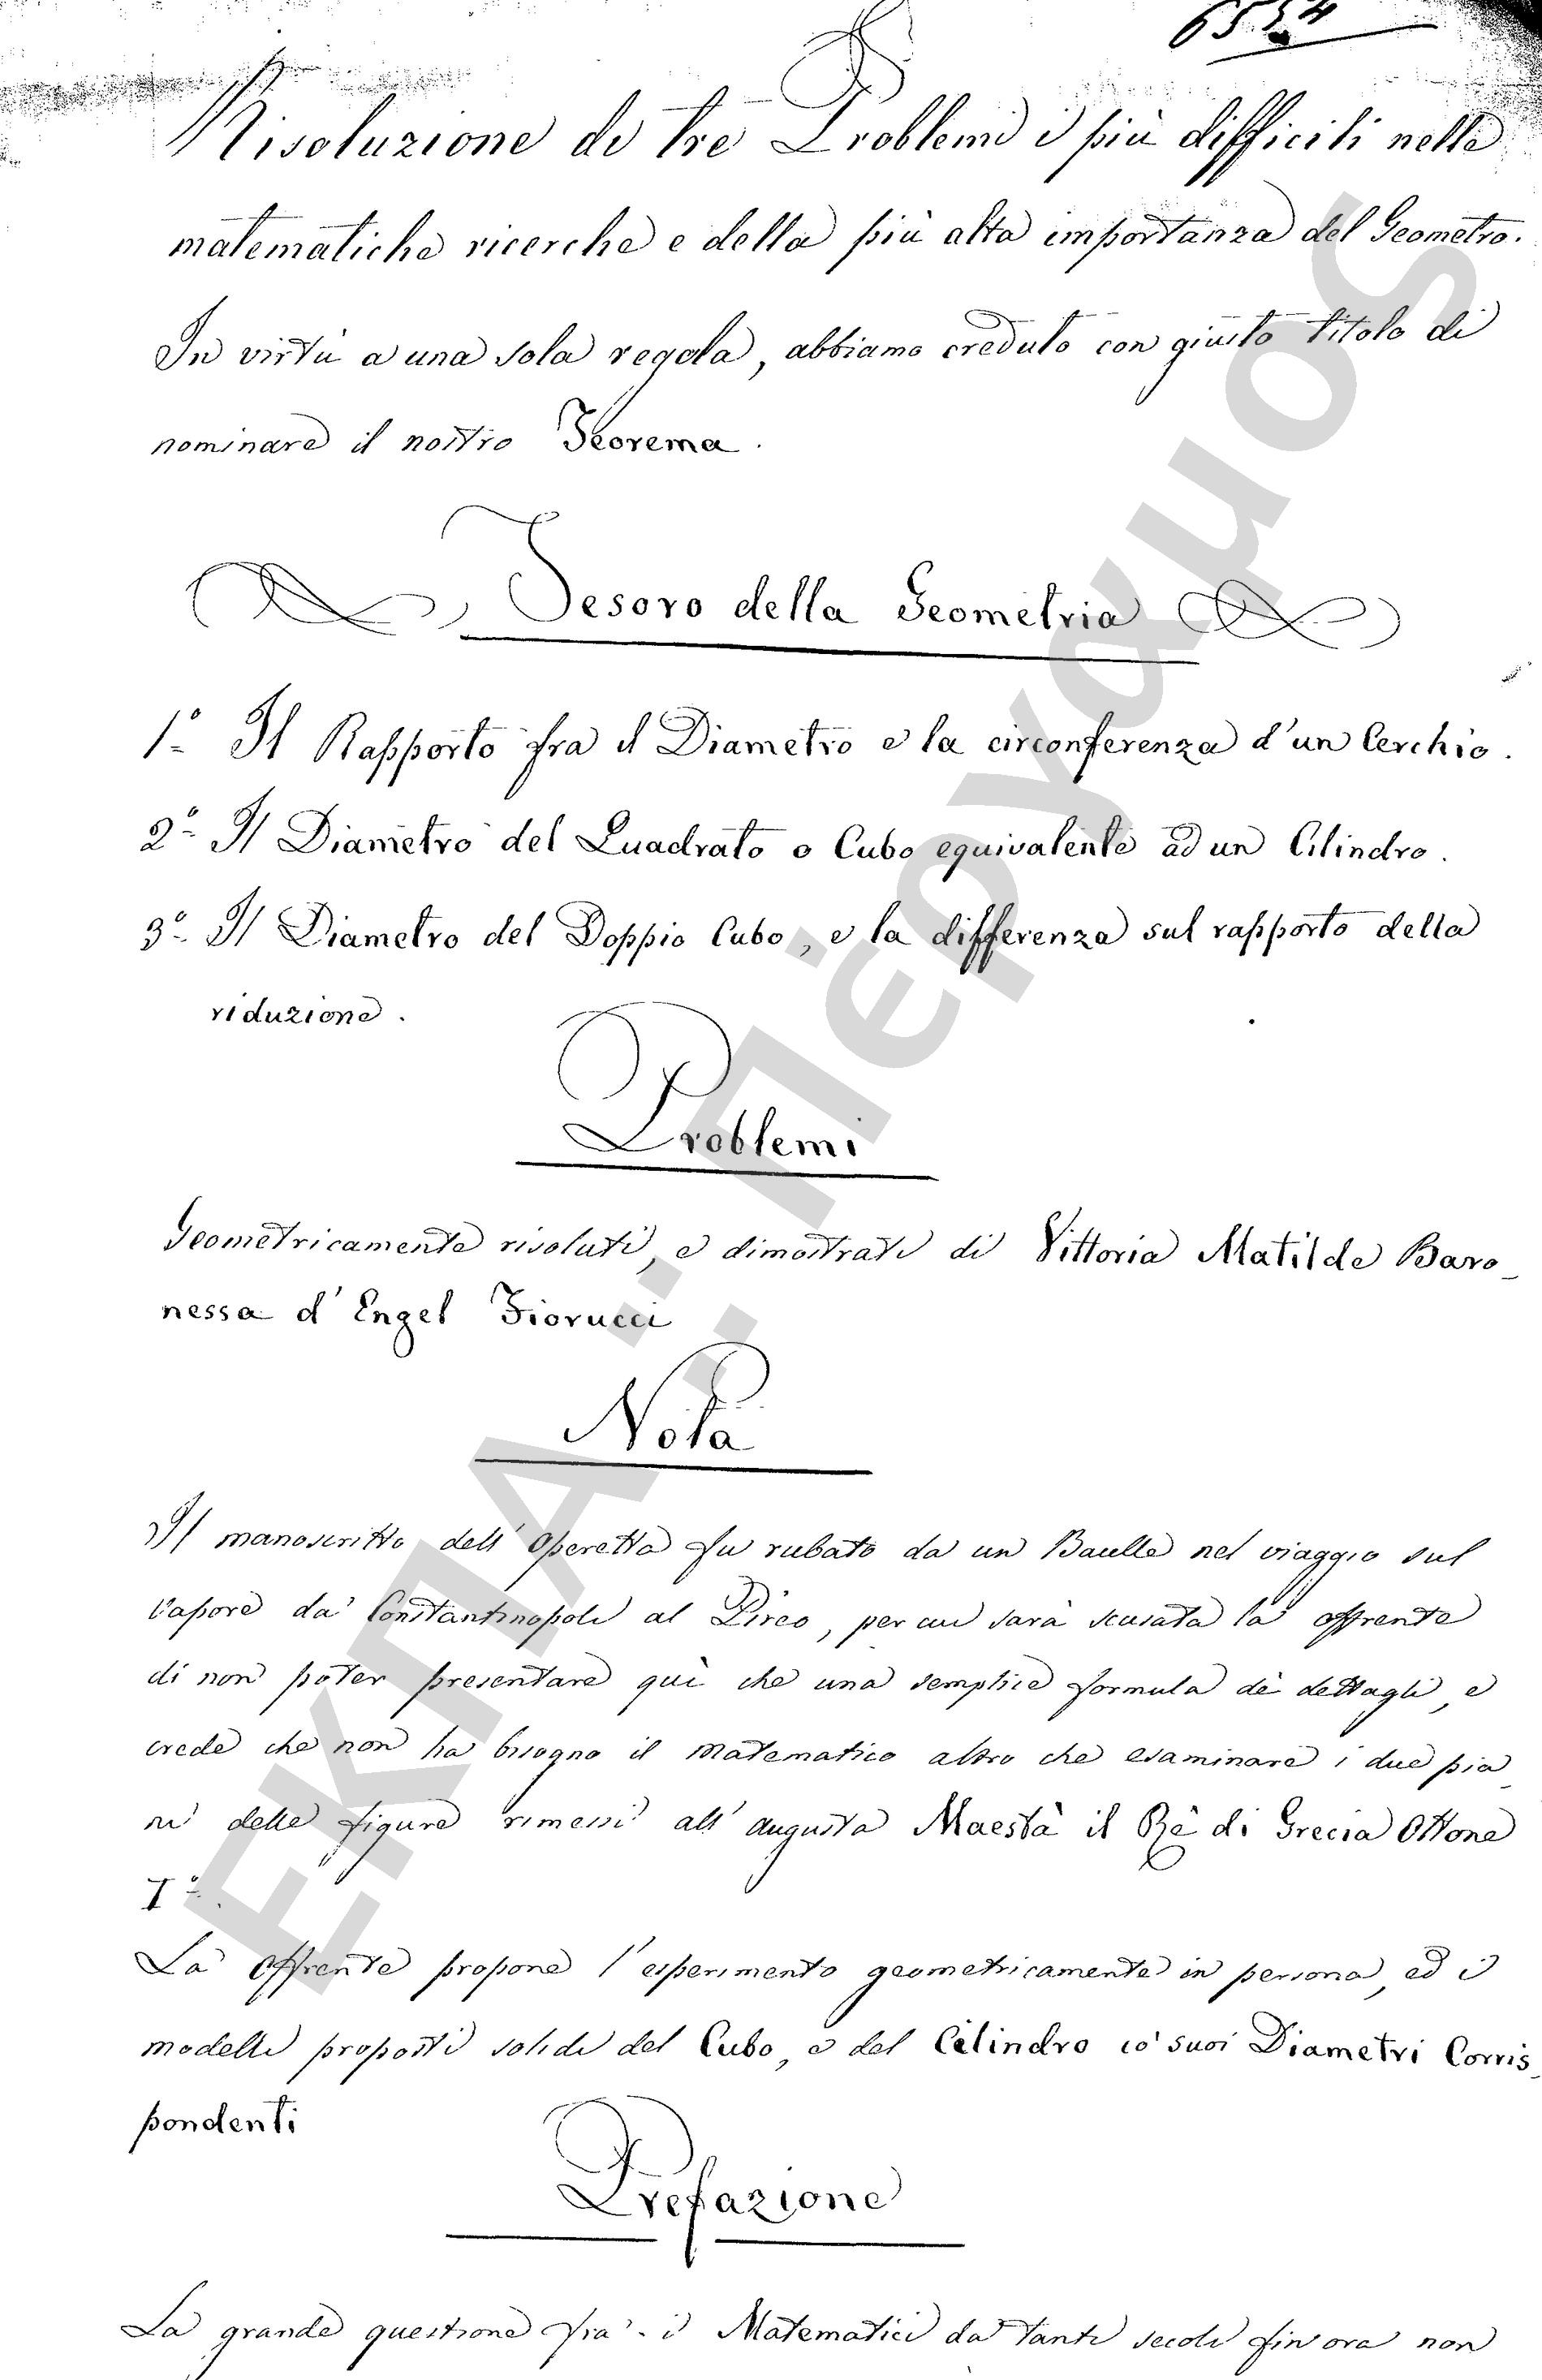 6554
Risoluzione di tre Problemi i più difficili nelle
matematiche ricerche e della più alta importanza del Geometro.
In virtù a una sola regola, abbiamo creduto con giusto titolo di
nominare il nostro Teorema.
Tesoro della Geometria
1º Il Rapporto fra il Diametro e la circonferenza d'un Cerchio.
2º Il Diametro del Quadrato o Cubo equivalente ad un Cilindro.
3º Il Diametro del Doppio Cubo, e la differenza sul rapporto della
riduzione.
Problemi
Geometricamente risoluti, e dimostrati di Vittoria Matilde Baro
nessa d'Engel Fiorucci
Nota
Il manoscritto dell'Operetta fu rubato da un Baulle nel viaggio sul
Vapore da Constantinopoli al Pireo, per cui sarà scusata la offrente
di non poter presentare quì che una semplice formula dè dettagli, e
crede che non ha bisogno il matematico altro che esaminare i due pia
ni delle figure rimessi all'augusta Maestà il Rè di Grecia Ottone
Iº.
La Offrente propone l'esperimento geometricamente in persona, ed i
modelli proposti solidi del Cubo, e del Cilindro co' suoi Diametri Corris
pondenti
Prefazione
La grande questione fra i Matematici da tanti secoli fin ora non
ΕΚΠΑ .: Περγαμος